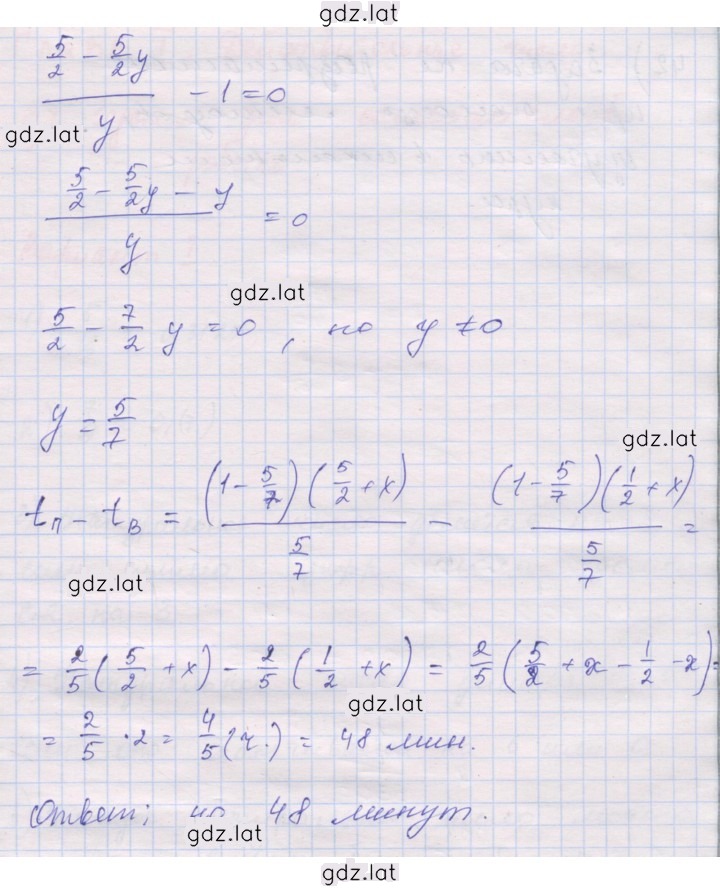 gdz.lat
(5/2 - 5/2 y)/y - 1 = 0
gdz.lat
(5/2 - 5/2 y - y)/y = 0
gdz.lat
5/2 - 7/2 y = 0, но y ≠ 0
y = 5/7
gdz.lat
tп - tв = (1 - 5/7)(5/2 + x)/(5/7) - (1 - 5/7)(1/2 + x)/(5/7) =
gdz.lat
= 2/5 (5/2 + x) - 2/5 (1/2 + x) = 2/5 (5/2 + x - 1/2 - x) =
gdz.lat
= 2/5 · 2 = 4/5 (ч.) = 48 мин.
Ответ: на 48 минут.
gdz.lat
gdz.lat